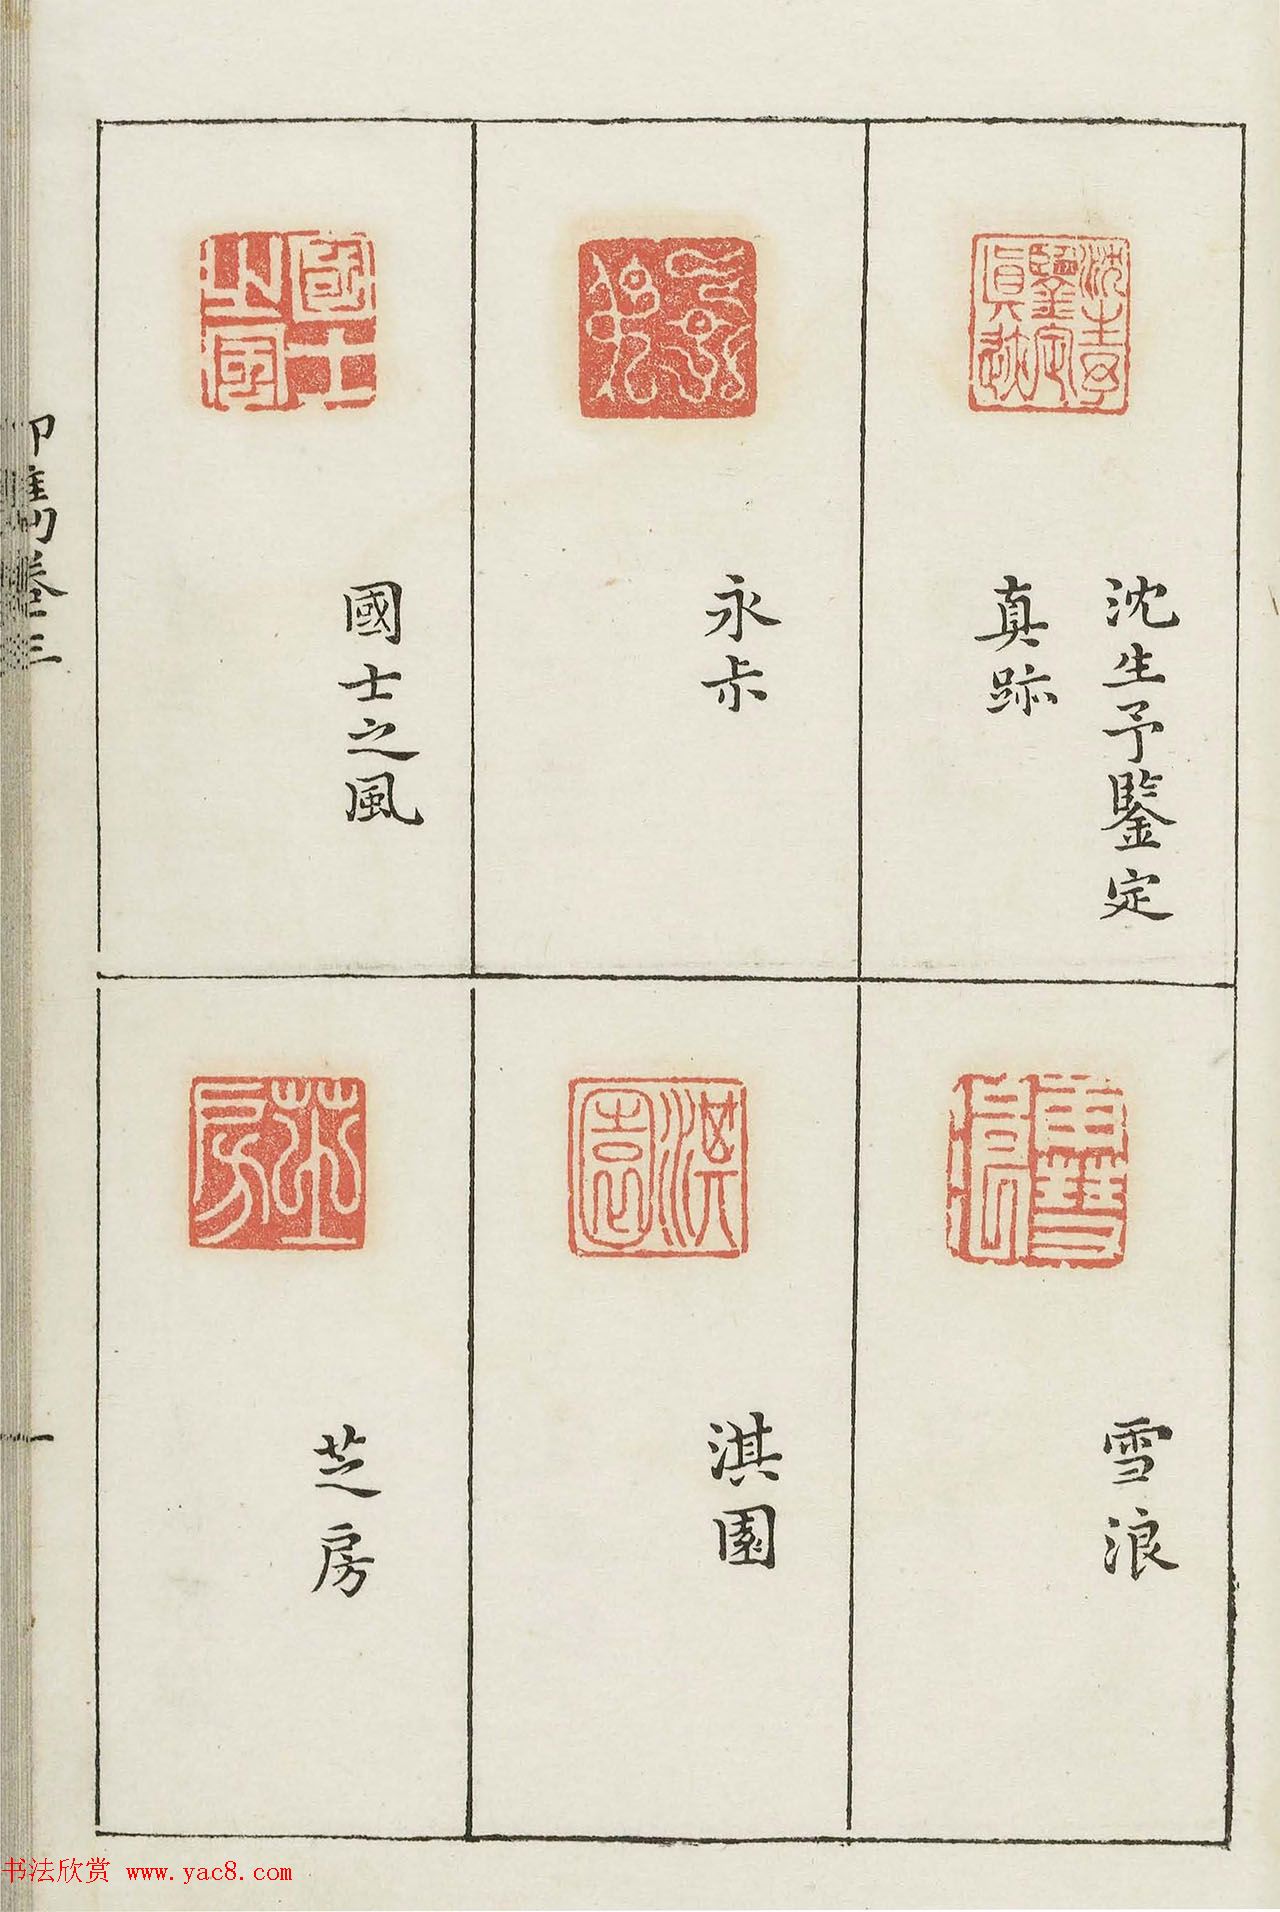 沈生予鑒定
真跡
永尗
國士之風
雪浪
淇園
芝房
印雋卷三
一
书法欣赏 www.yac8.com